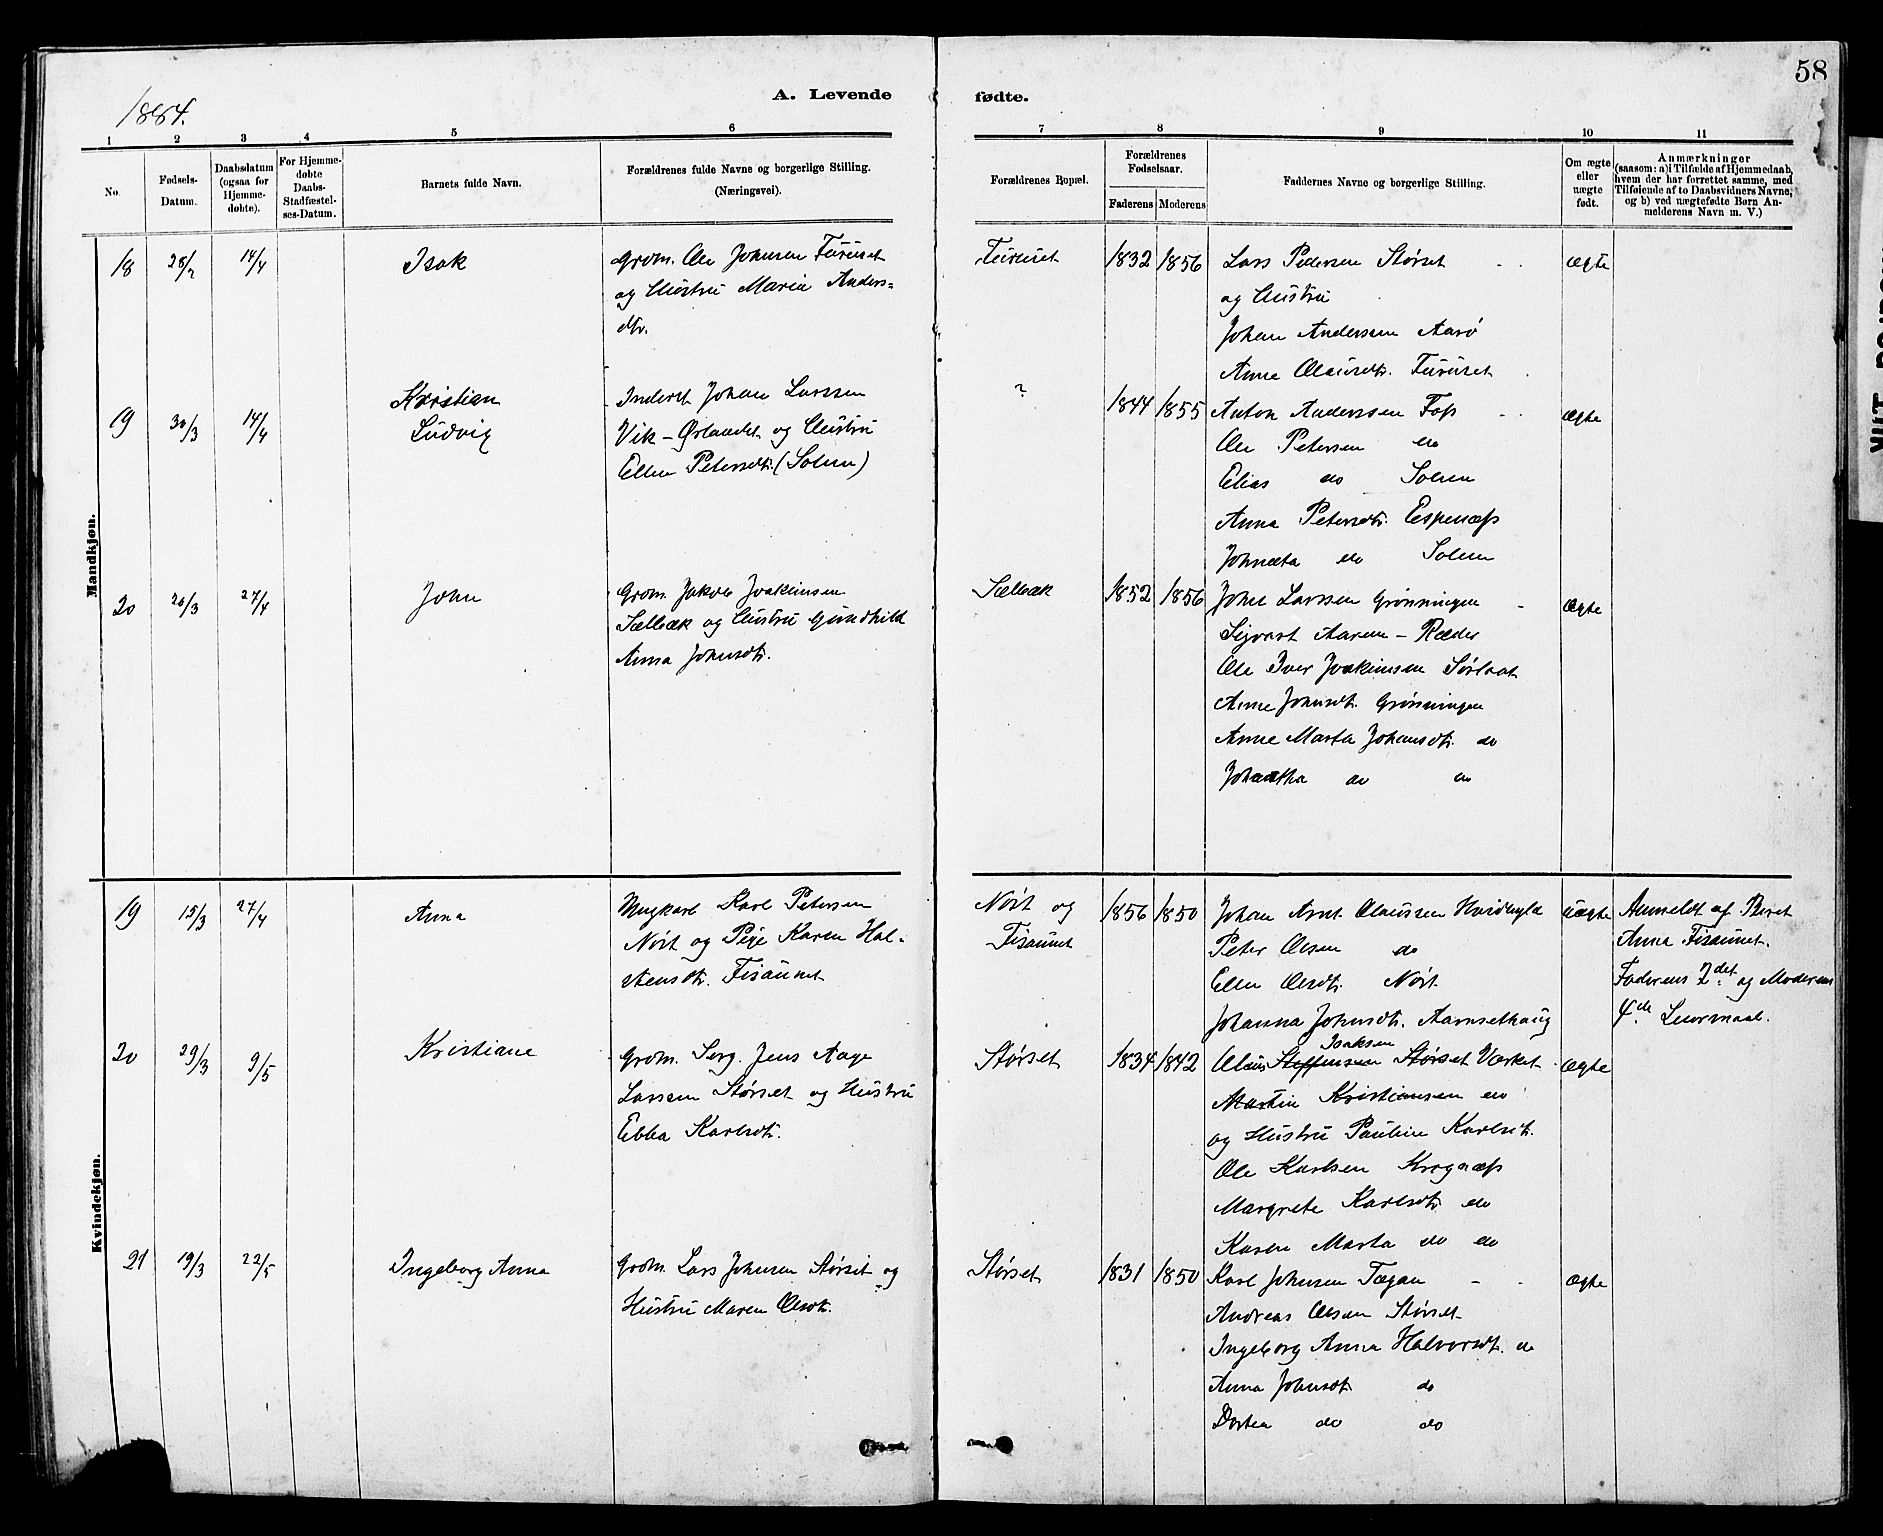 58
1884.
A. Levende fødte.
1 2 3 4 5 6 7 8 9 10 11
No.
Fødsels-
Datum.
Daabsdatum
(ogsaa for
Hjemme-
døbte).
For Hjemme-
døbte
Daabs-
Stadfæstel-
ses-Datum.
Barnets fulde Navn.
Forældrenes fulde Navne og borgerlige Stilling.
(Næringsvei).
Forældrenes Bopæl.
Forældrenes
Fødselsaar.
Faderens Moderens
Faddernes Navne og borgerlige Stilling.
Om ægte
eller
uægte
født.
Anmærkninger
(saasom: a) i Tilfælde af Hjemmedaab,
hvem der har forrettet samme, med
Tilføiende af to Daabsvidners Navne,
og b) ved uægtefødte Børn An-
melderens Navn m. V.)
Mandkjøn.
18 28/2 14/4 Isak
Grdm. Ole Johnsen Fururset
og Hustru Maria Anders=
dtr.
Fururset 1832 1856
Lars Pedersen Størset
og Hustru
Johan Andersen Aarø
Anne Olausdtr. Fururset
ægte
19 30/3 14/4
Kristian
Ludvig
Inderst Johan Larssen
Vik - Ørlandet og Hustru
Ellen Petersdtr. (Solem)
? 1844 1855
Anton Andersen Fos
Ole Petersen do
Elias do Solem
Anna Petersdtr. Espenæs
Johnæta do Solem
ægte
20 20/3 27/4 John
Grdm. Jakob Joakimsen
Sælbæk og Hustru Gundhild
Anna Johnsdtr.
Sælbæk 1852 1856
John Larssen Grønningen
Sigvart Aarem - Ræder
Ole Iver Joakimsen Sørlaat
Anne Johnsdtr. Grønningen
Anne Marta Johansdtr. do
do do
ægte
Kvindekjøn.
19 15/3 27/4 Anna
Ungkarl Karl Petersen
Nøst og Pige Karen Hal=
stensdtr. Fisaunet
Nøst og
Fisaunet
1856 1850
Johan Arnt Olaussen
Peter Olsen do
Ellen Olsdtr. Nøst
Johanna Johnsdtr. Aarnsethaug
uægte
Anmeldt af Beret
Anna Fisaunet.
Faderens 2det og Moderens
4de Leiermaal.
20 29/3 9/5 Kristiane
Grdm. Serg. Jens Aage
Larssen Størset og Hustru
Ebba Karlsdtr.
Størset 1834 1842
Isaksen
Olaus Steffensen Størset Værket
Martin Kristiansen do
og Hustru Pauline Karlsdtr.
Ole Karlsen Krognæs
Margrete Karlsdtr. do
Karen Marta do do
ægte
21 19/3 22/5 Ingeborg Anna
Grdm. Lars Johnsen Størset og
Hustru Maren Olsdtr.
Størset 1831 1850
Karl Johnsen Tægan
Andreas Olsen Størset
Ingeborg Anna Halvorsdtr. do
Anna Johnsdtr. do
Dortea do do
ægte